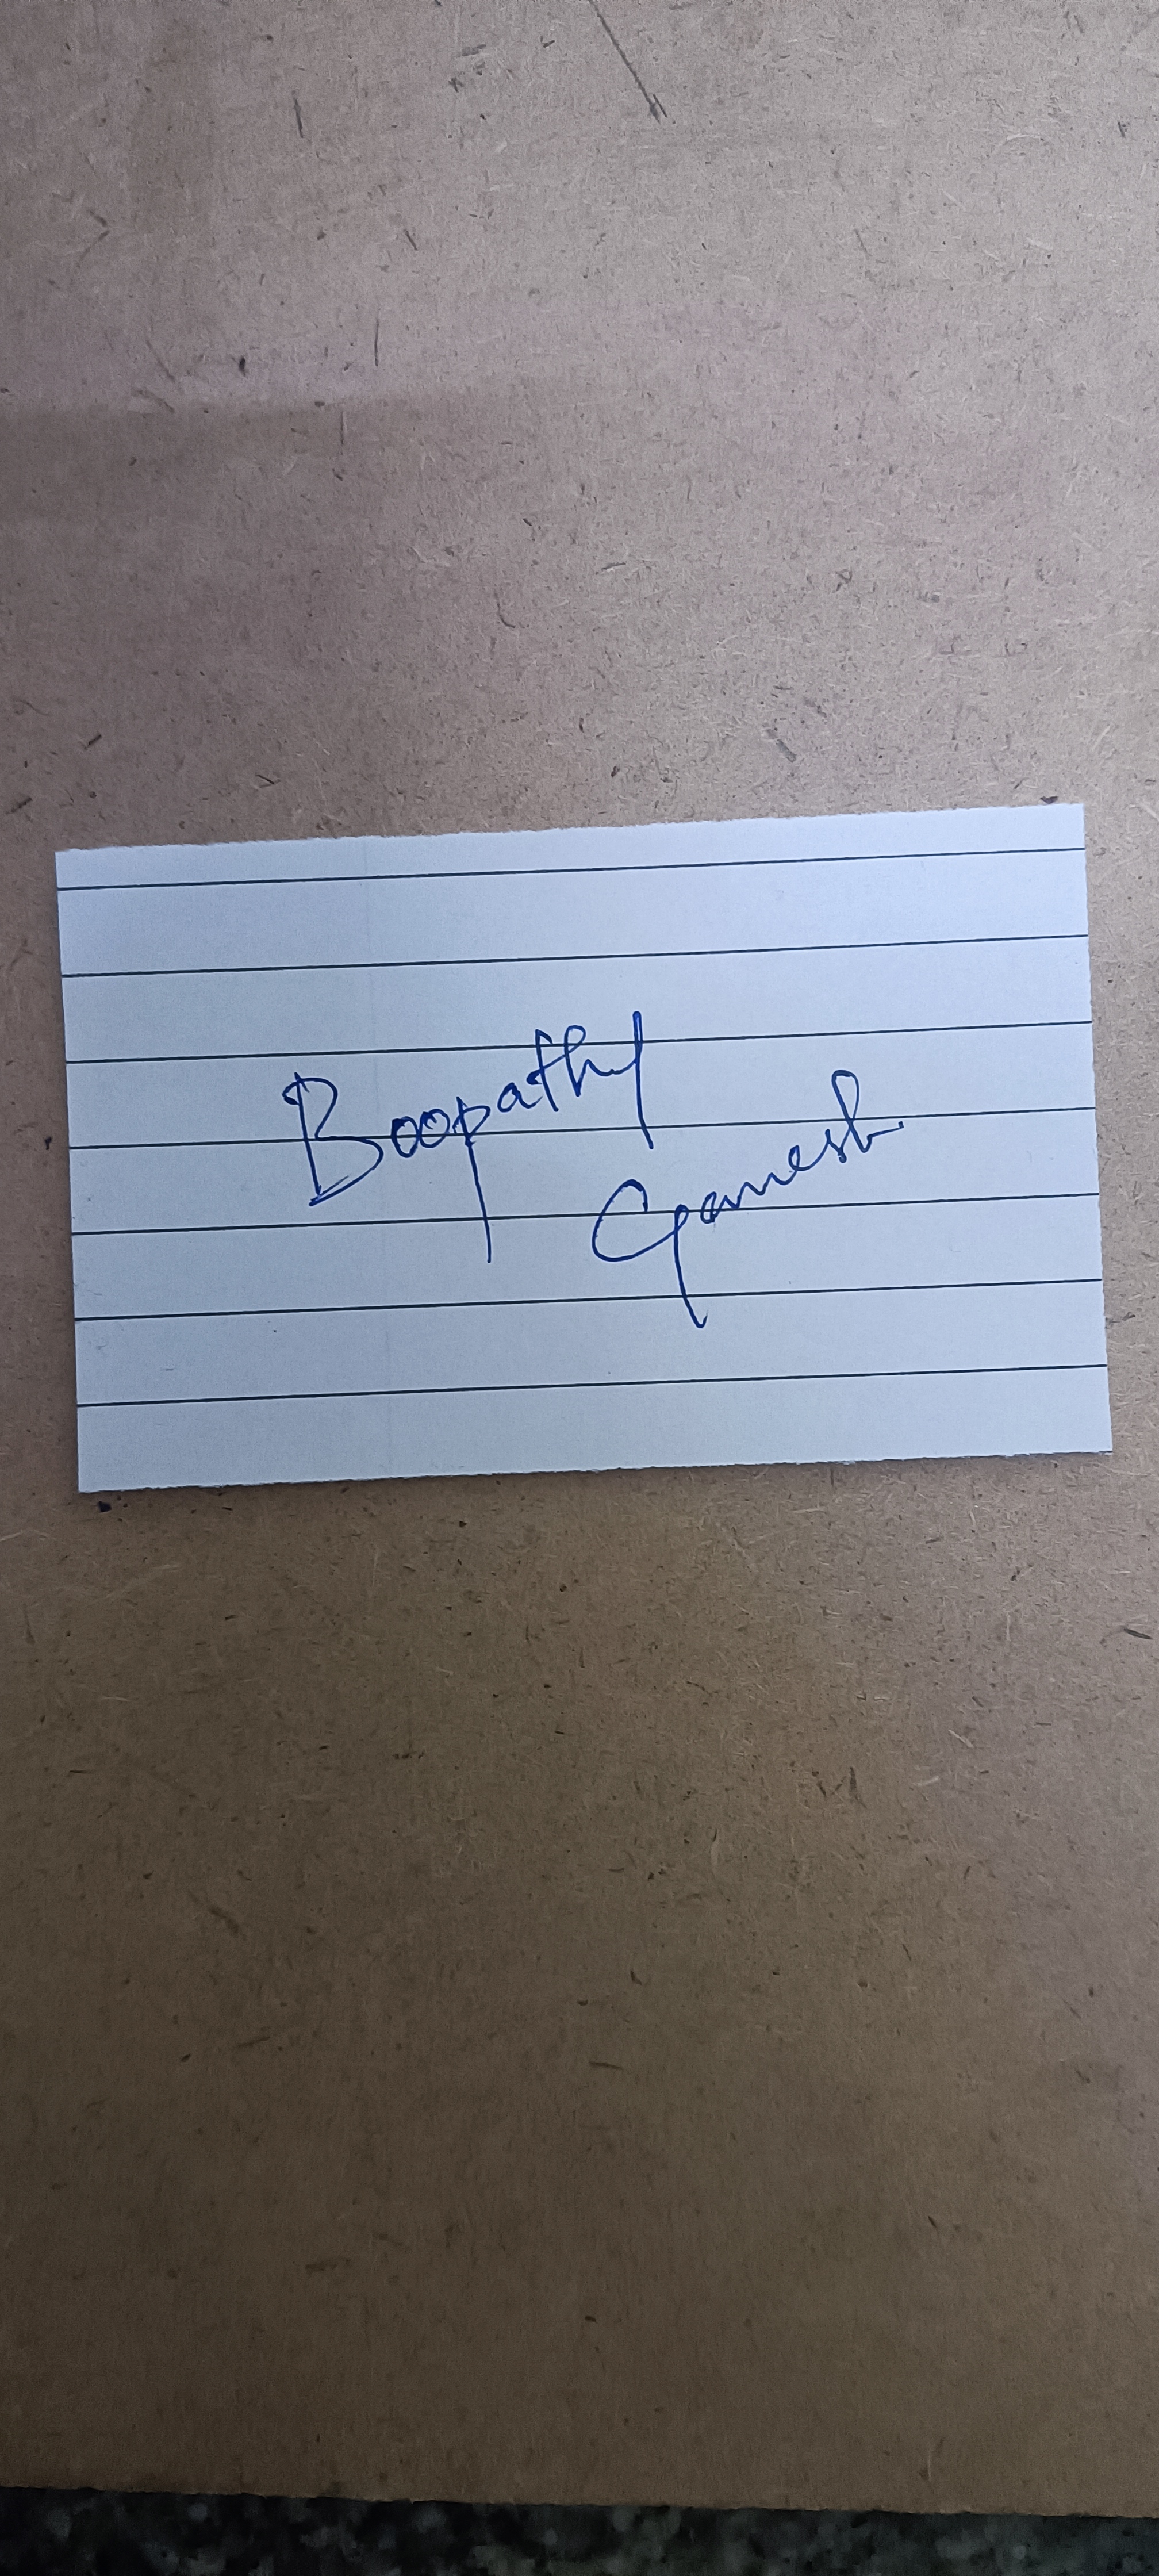 Boopathy
Ganesh